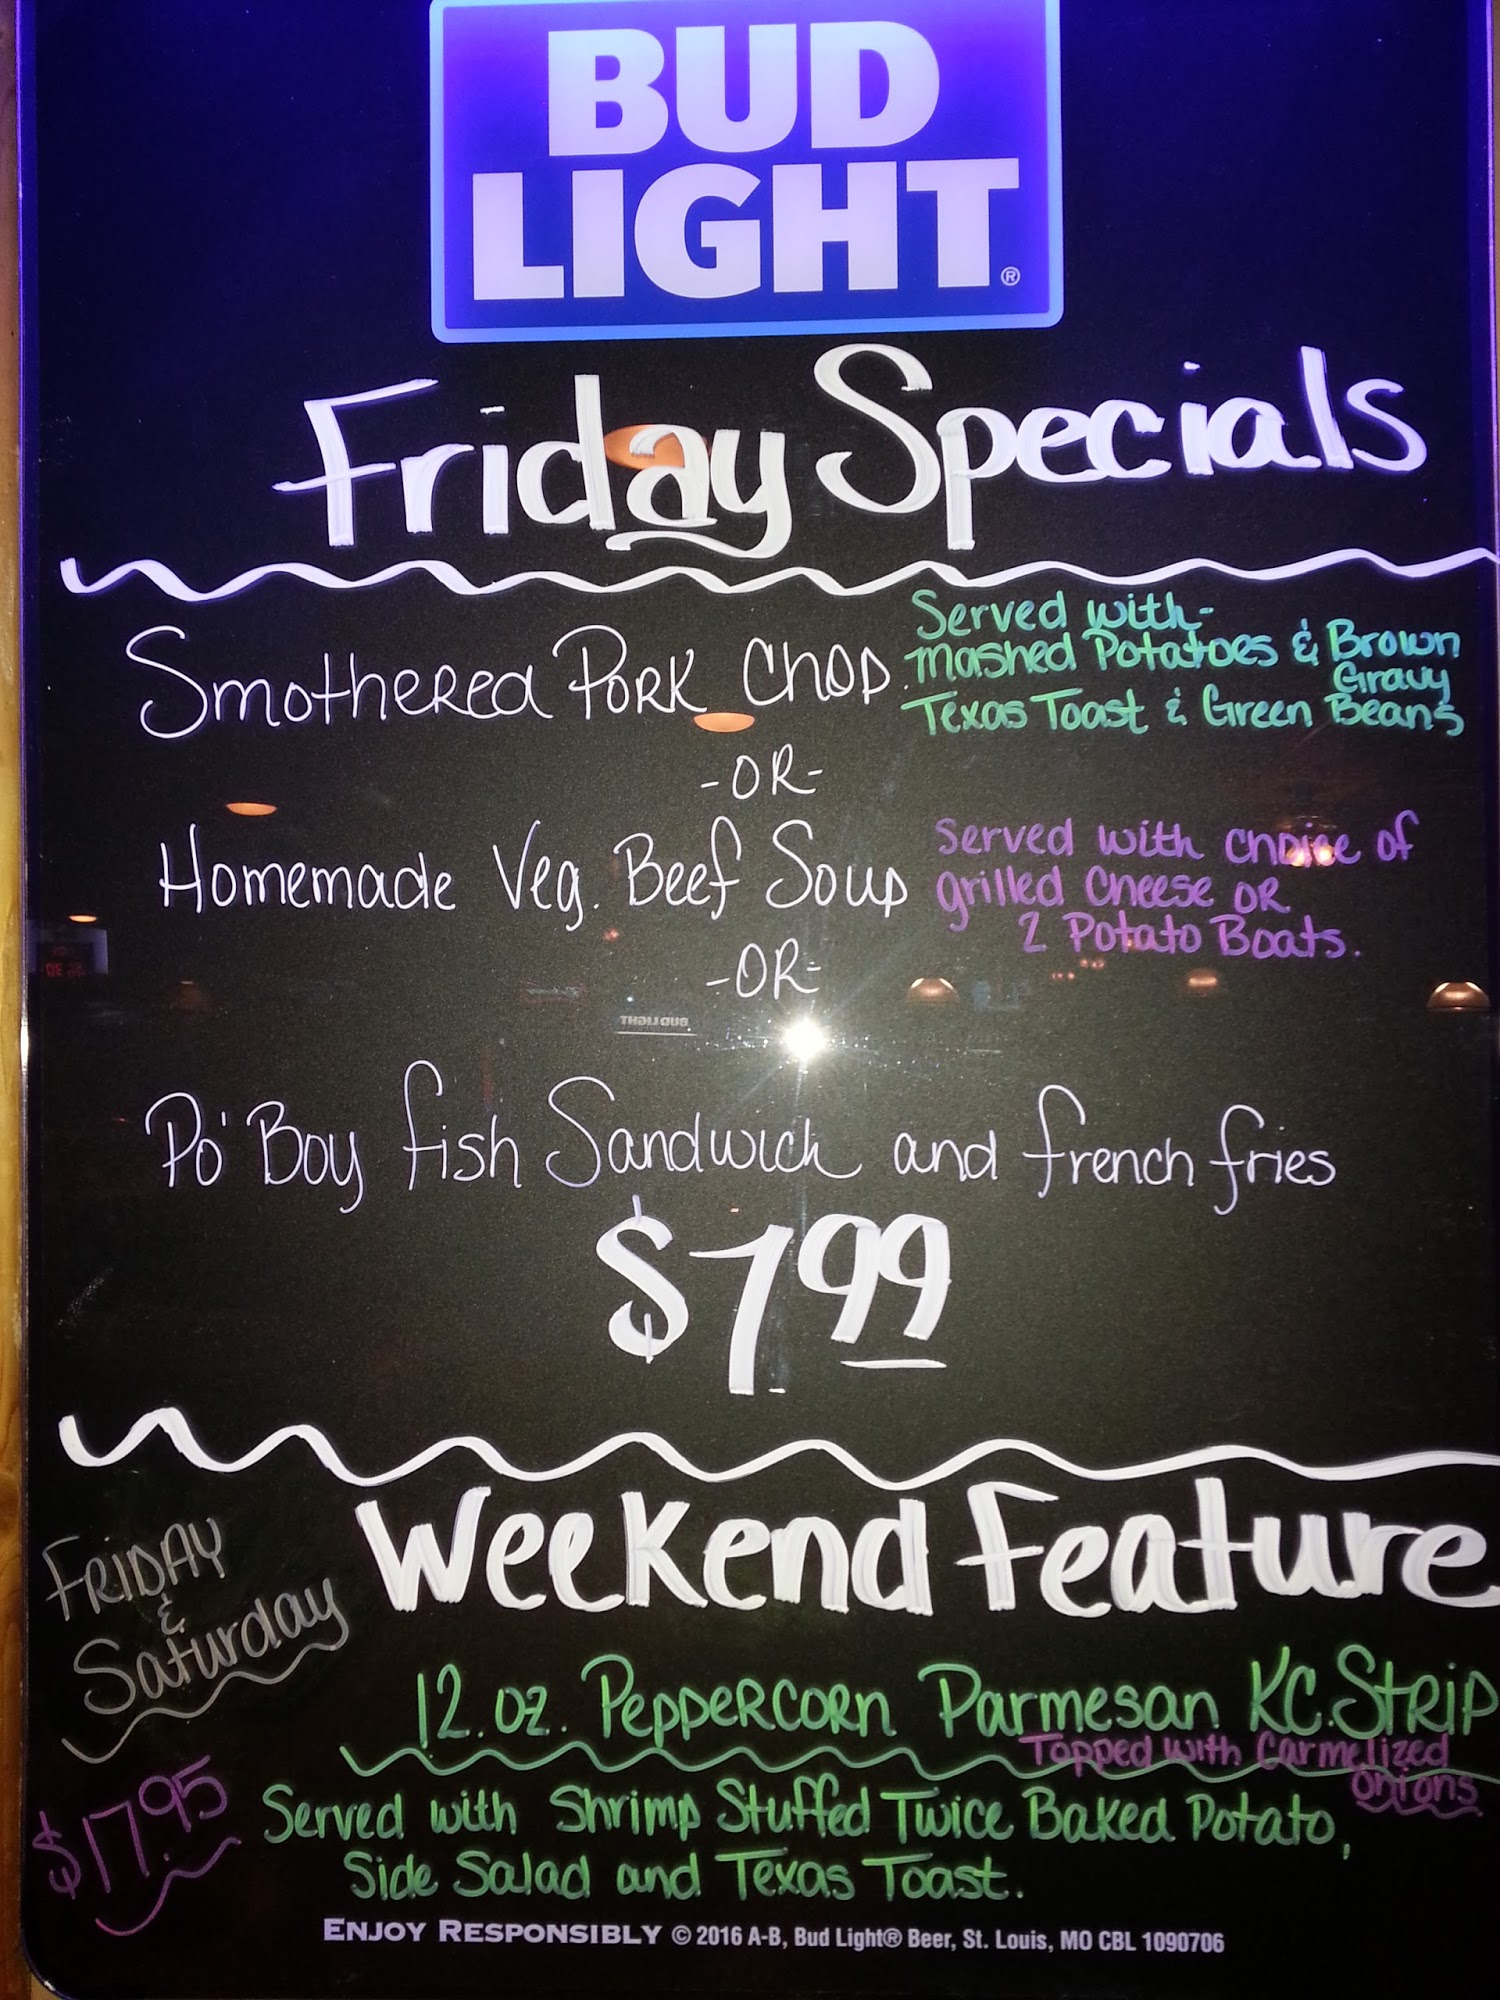 BUD
LIGHT®
Friday Specials
Smothered Pork Chop
Served with-
mashed Potatoes & Brown
Gravy
Texas Toast & Green Beans
-OR-
Homemade Veg. Beef Soup
Served with choice of
grilled cheese or
2 Potato Boats.
-OR-
Po' Boy fish Sandwich and french fries
$7.99
Weekend Feature
Friday
&
Saturday
12.oz. Peppercorn Parmesan KC.Strip
Topped with Carmelized
onions
$17.95
Served with Shrimp Stuffed Twice Baked Potato,
Side Salad and Texas Toast.
ENJOY RESPONSIBLY © 2016 A-B, Bud Light® Beer, St. Louis, MO CBL 1090706